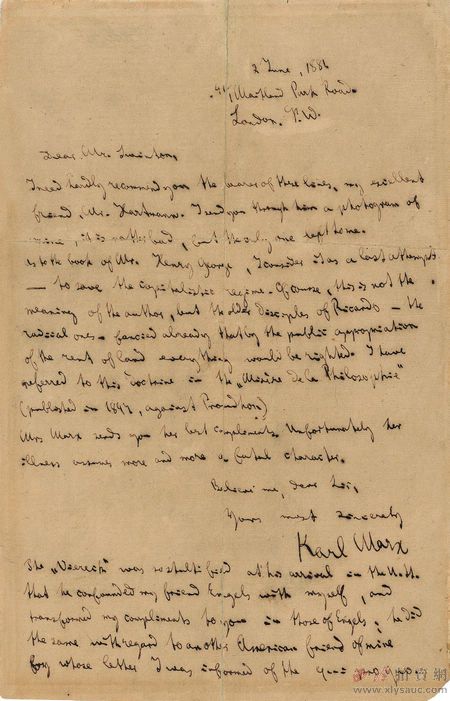 2 June, 1881
41, Maitland Park Road.
London. N.W.
Dear Mr. Swinton,
I need hardly recommend you the bearer of these lines, my excellent
friend, Mr. Hartmann. I send you through him a photogram of
mine; it is rather bad, but the only one left to me.
As to the book of Mr. Henry George, I consider it as a last attempt
— to save the capitalistic regime. Of course, this is not the
meaning of the author, but the older disciples of Ricardo — the
radical ones — fancied already that by the public appropriation
of the rent of land everything would be righted. I have
referred to this doctrine in the „Misère de la Philosophie"
(published in 1847, against Proudhon)
Mrs Marx sends you her best compliments. Unfortunately her
illness assumes more and more a fatal character.
Believe me, dear Sir,
Yours most sincerely
Karl Marx
The „Viereck" was so stultified at his arrival in the U.St.
that he confounded my friend Engels with myself, and
transformed my compliments to you in those of Engels; he did
the same with regard to another American friend of mine
by whose letter I was informed of the qui pro quo.
www.xlysauc.com